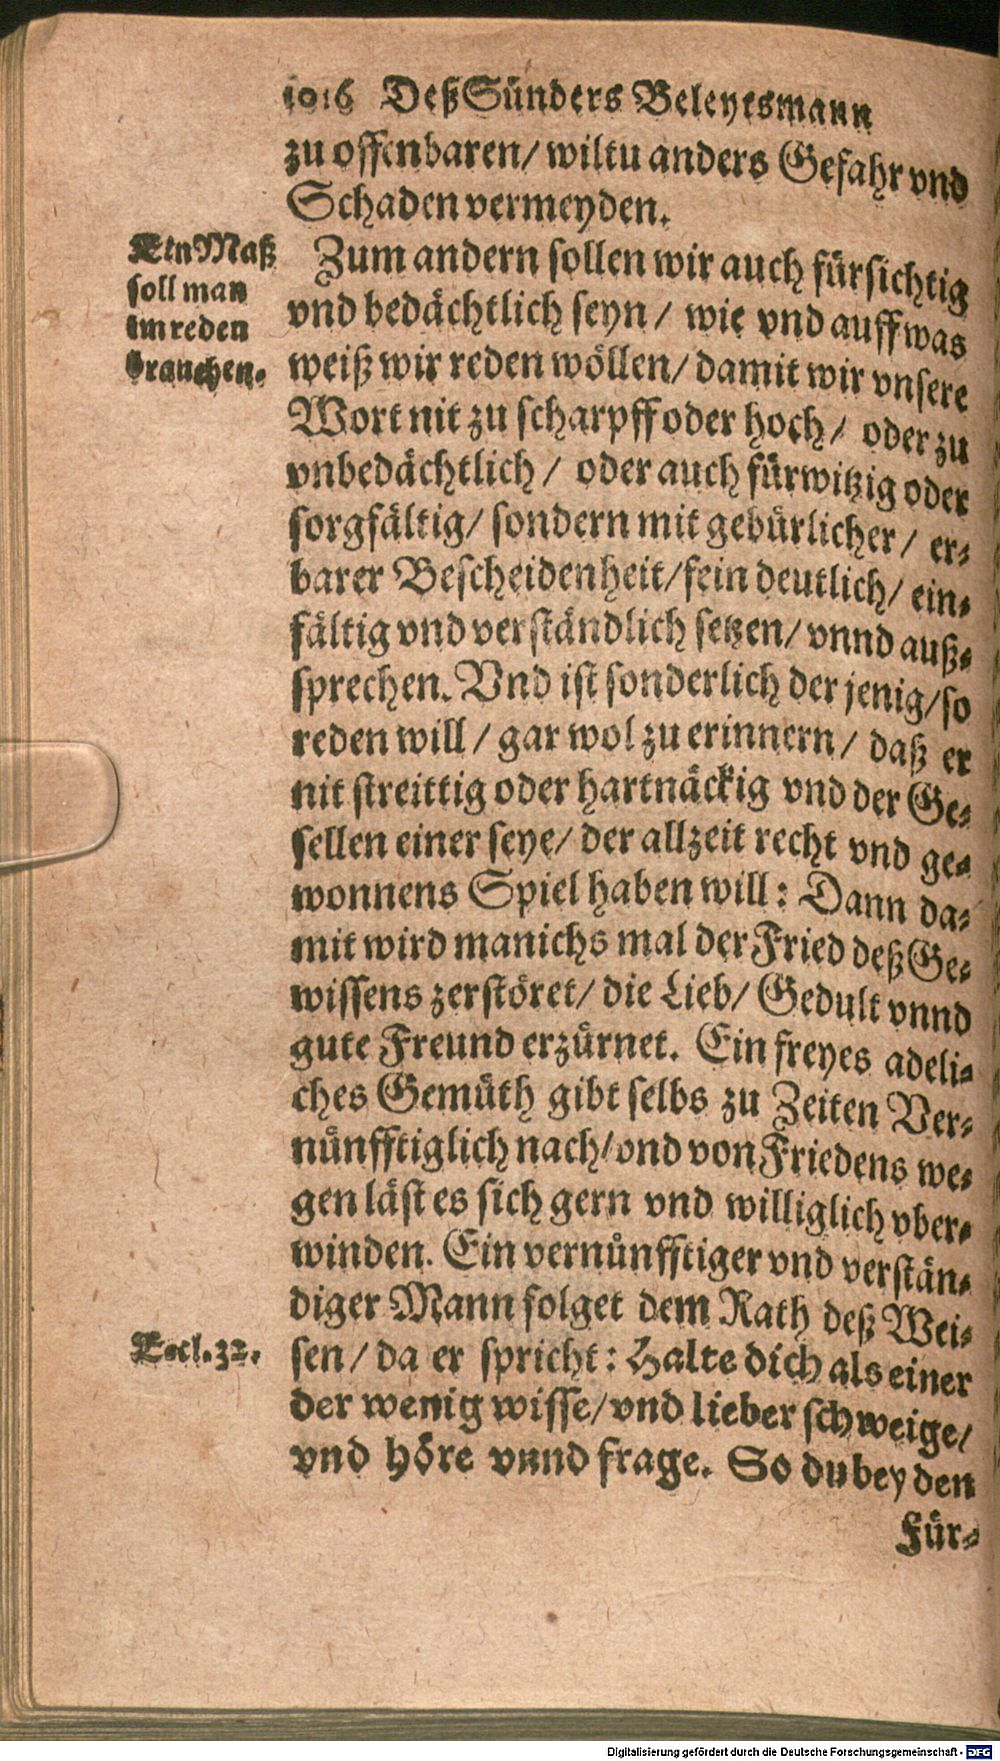 1016 Deß Sünders Beleytsmann
zu offenbaren/ wiltu anders Gefahr vnd
Schaden vermeyden.
Ein Maß
soll man
im reden
brauchen.
Zum andern sollen wir auch fürsichtig
vnd bedächtlich seyn/ wie vnd auff was
weiß wir reden wöllen/ damit wir vnsere
Wort nit zu scharpff oder hoch/ oder zu
vnbedächtlich/ oder auch fürwitzig oder
sorgfältig/ sondern mit gebürlicher/ er⸗
barer Bescheidenheit/ fein deutlich/ ein⸗
fältig vnd verständlich setzen/ vnnd auß⸗
sprechen. Vnd ist sonderlich der jenig/ so
reden will/ gar wol zu erinnern/ daß er
nit streittig oder hartnäckig vnd der Ge⸗
sellen einer seye/ der allzeit recht vnd ge⸗
wonnens Spiel haben will: Dann da⸗
mit wird manichs mal der Fried deß Ge⸗
wissens zerstöret/ die Lieb/ Gedult vnnd
gute Freund erzürnet. Ein freyes adeli⸗
ches Gemüth gibt selbs zu Zeiten Ver⸗
nünfftiglich nach/ vnd von Friedens we⸗
gen läst es sich gern vnd williglich vber⸗
winden. Ein vernünfftiger vnd verstän⸗
diger Mann folget dem Rath deß Wei⸗
Eccl. 32.
sen/ da er spricht: Halte dich als einer
der wenig wisse/ vnd lieber schweige/
vnd höre vnnd frage. So du bey den
Für⸗
Digitalisierung gefördert durch die Deutsche Forschungsgemeinschaft - DFG